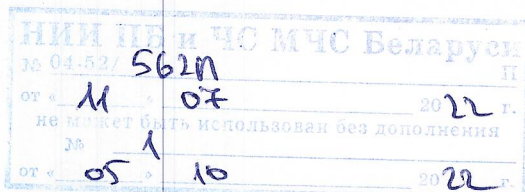 НИИ ПБ и ЧС МЧС Беларуси
№ 04-52/ 562п П
от « 11 » 07 2022 г.
не может быть использован без дополнения
№ 1
от « 05 » 10 2022 г.